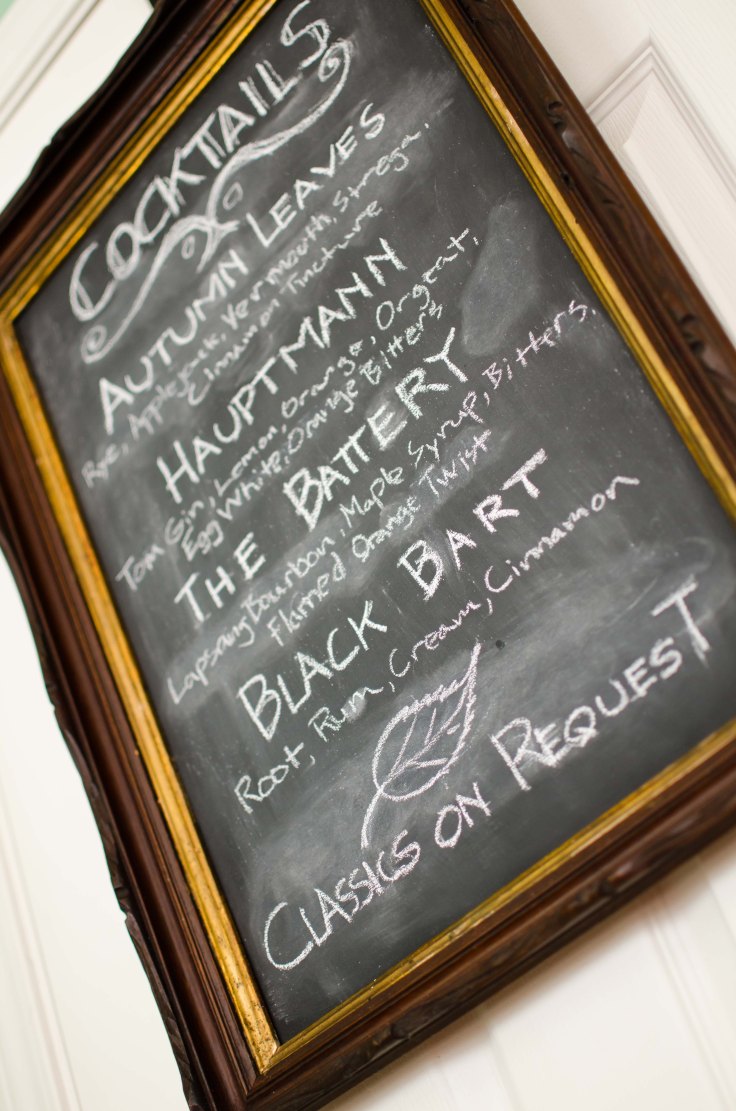 COCKTAILS
AUTUMN LEAVES
Rye, Applejack, Vermouth, Strega,
Cinnamon Tincture
HAUPTMANN
Tom Gin, Lemon, Orange, Orgeat,
Egg White, Orange Bitters
THE BATTERY
Lapsang Bourbon, Maple Syrup, Bitters,
Flamed Orange Twist
BLACK BART
Root, Rum, Cream, Cinnamon
CLASSICS ON REQUEST